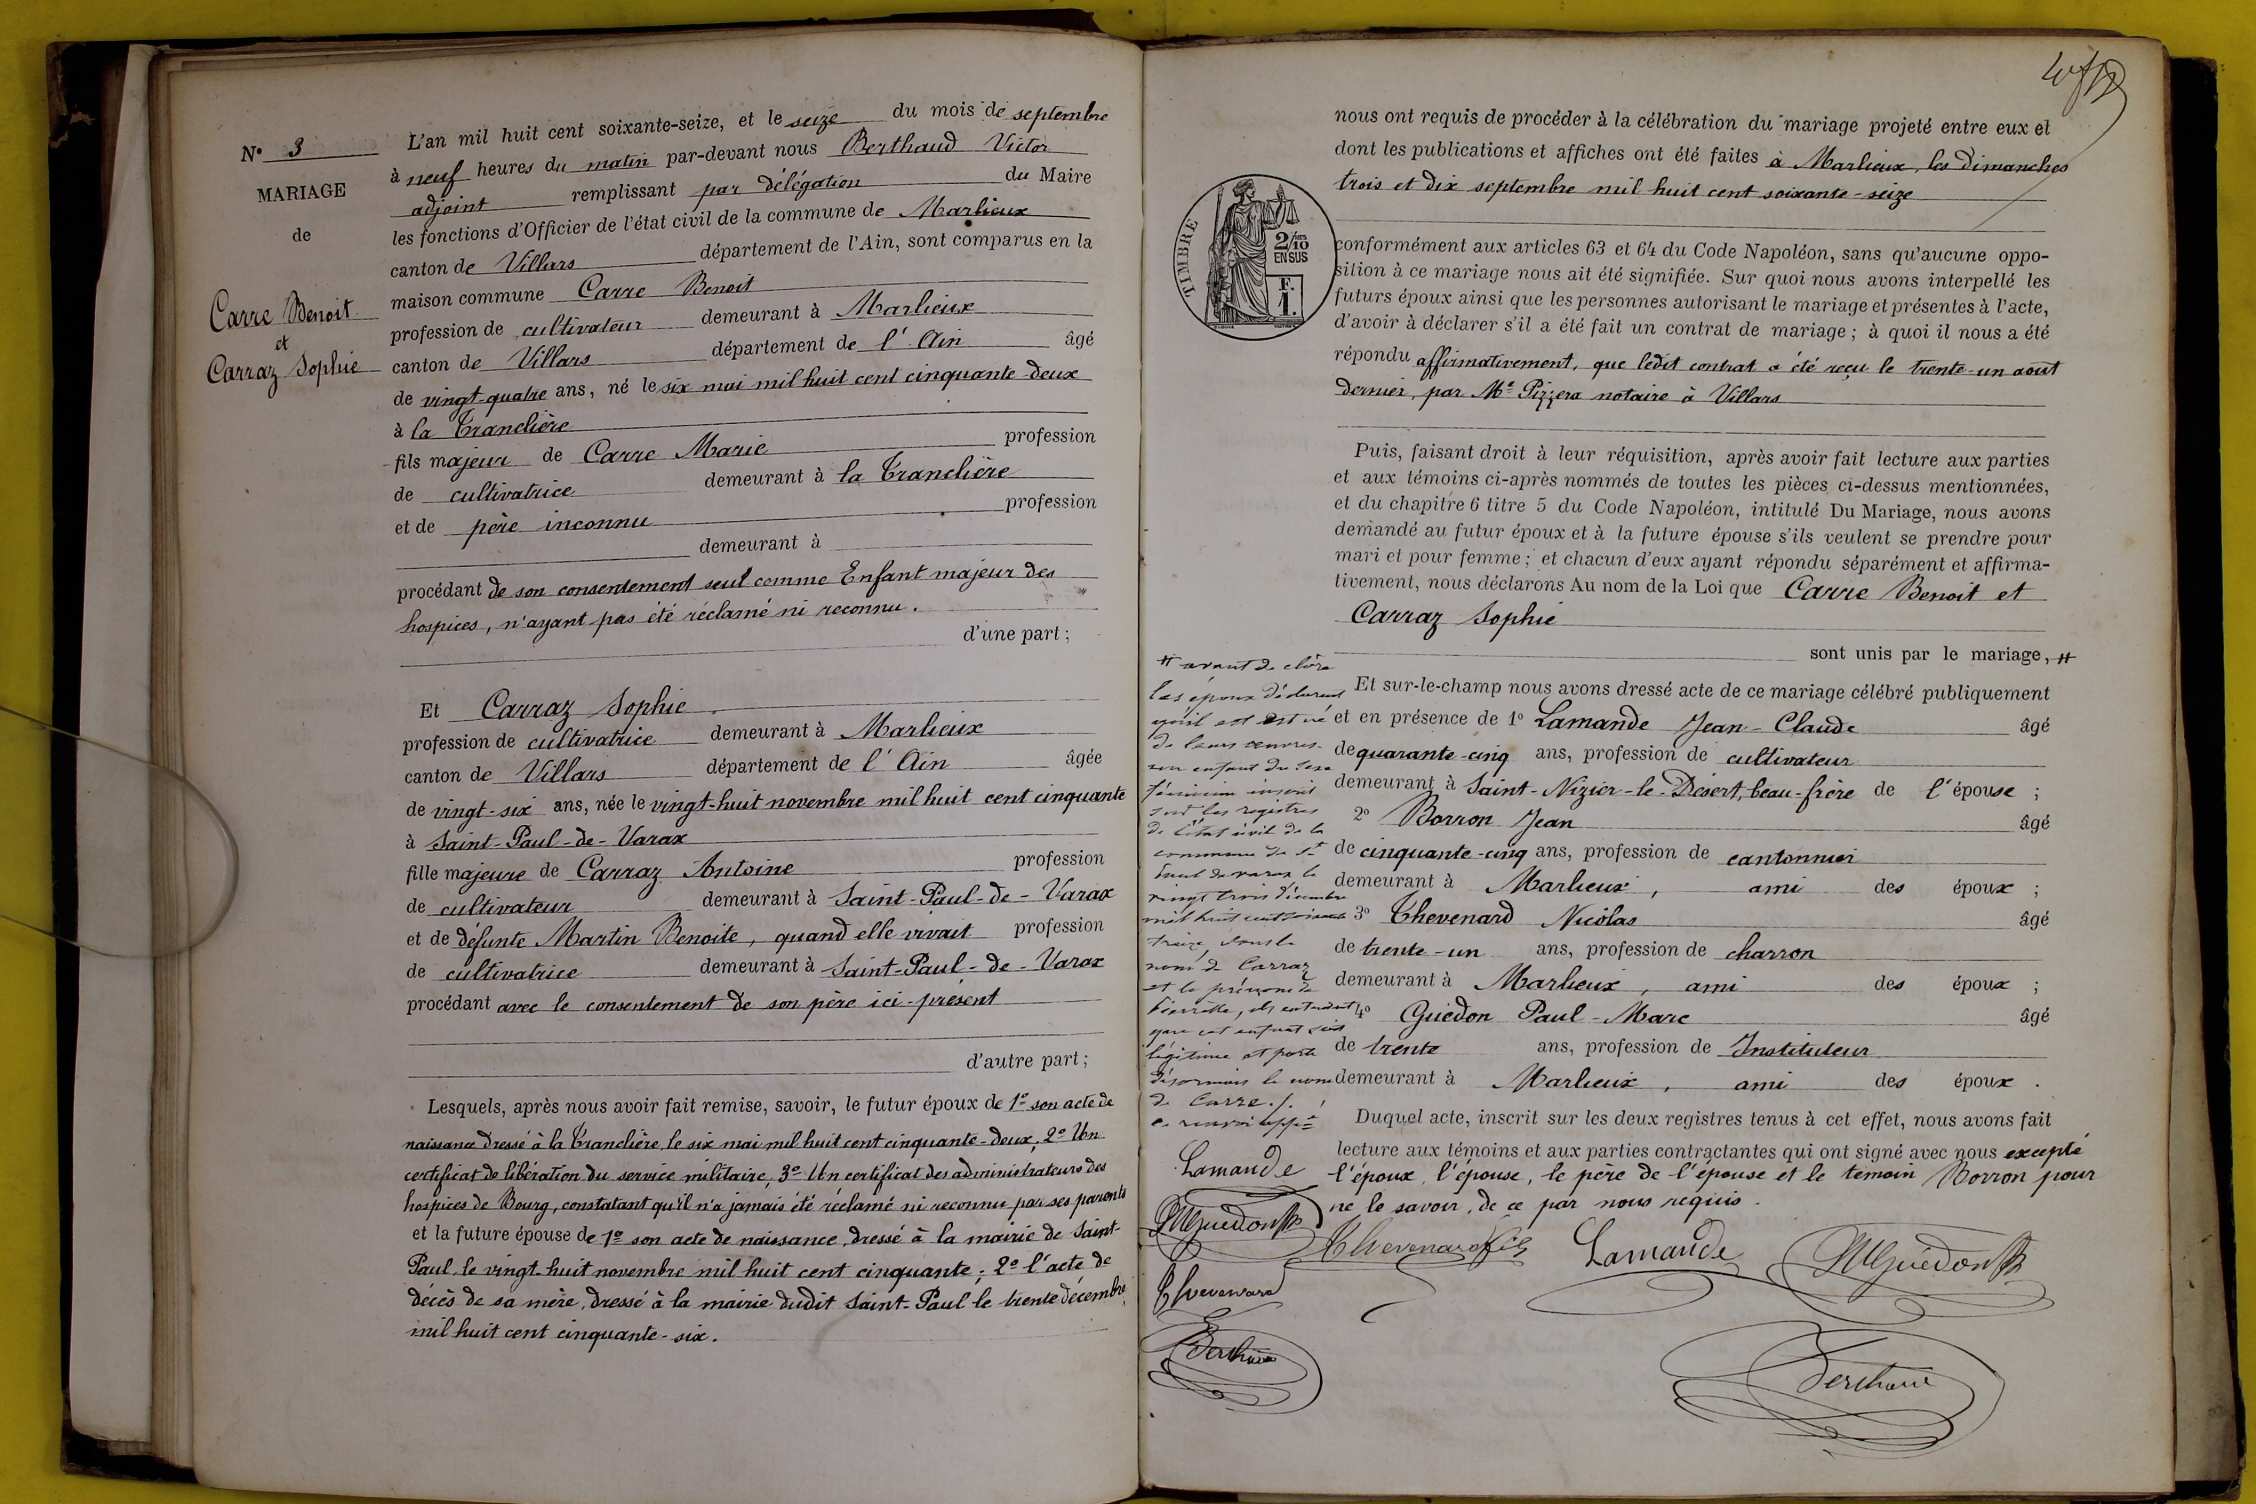 N° 3
MARIAGE
de
Carre Benoit
et
Carraz Sophie
L'an mil huit cent soixante-seize, et le seize du mois de septembre
à neuf heures du matin par-devant nous Berthaud Victor
adjoint remplissant par délégation du Maire
les fonctions d'Officier de l'état civil de la commune de Marlieux
canton de Villars département de l'Ain, sont comparus en la
maison commune Carre Benoit
profession de cultivateur demeurant à Marlieux
canton de Villars département de l'Ain âgé
de vingt-quatre ans, né le six mai mil huit cent cinquante-deux
à la Tranclière
fils majeur de Carre Marie profession
de cultivatrice demeurant à la Tranclière
et de père inconnu profession
demeurant à
procédant de son consentement seul comme Enfant majeur des
hospices, n'ayant pas été réclamé ni reconnu.
d'une part;
Et Carraz Sophie
profession de cultivatrice demeurant à Marlieux
canton de Villars département de l'Ain âgée
de vingt-six ans, née le vingt-huit novembre mil huit cent cinquante
à Saint-Paul-de-Varax
fille majeure de Carraz Antoine profession
de cultivateur demeurant à Saint-Paul-de-Varax
et de défunte Martin Benoite, quand elle vivait profession
de cultivatrice demeurant à Saint-Paul-de-Varax
procédant avec le consentement de son père ici-présent
d'autre part;
Lesquels, après nous avoir fait remise, savoir, le futur époux de 1° son acte de
naissance dressé à la Tranclière, le six mai mil huit cent cinquante-deux, 2° Un
certificat de libération du service militaire, 3° Un certificat des administrateurs des
hospices de Bourg, constatant qu'il n'a jamais été réclamé ni reconnu par ses parents
et la future épouse de 1° son acte de naissance, dressé à la mairie de Saint-
Paul, le vingt-huit novembre mil huit cent cinquante; 2° l'acte de
décès de sa mère, dressé à la mairie dudit Saint-Paul le trente décembre
mil huit cent cinquante-six.
nous ont requis de procéder à la célébration du mariage projeté entre eux et
dont les publications et affiches ont été faites à Marlieux, les dimanches
trois et dix septembre mil huit cent soixante-seize
TIMBRE
2/10
EN SUS
F.
1.
conformément aux articles 63 et 64 du Code Napoléon, sans qu'aucune oppo-
sition à ce mariage nous ait été signifiée. Sur quoi nous avons interpellé les
futurs époux ainsi que les personnes autorisant le mariage et présentes à l'acte,
d'avoir à déclarer s'il a été fait un contrat de mariage; à quoi il nous a été
répondu affirmativement, que ledit contrat a été reçu le trente-un août
dernier, par Me Pizzera notaire à Villars
Puis, faisant droit à leur réquisition, après avoir fait lecture aux parties
et aux témoins ci-après nommés de toutes les pièces ci-dessus mentionnées,
et du chapitre 6 titre 5 du Code Napoléon, intitulé Du Mariage, nous avons
demandé au futur époux et à la future épouse s'ils veulent se prendre pour
mari et pour femme; et chacun d'eux ayant répondu séparément et affirma-
tivement, nous déclarons Au nom de la Loi que Carre Benoit et
Carraz Sophie
sont unis par le mariage, #
Et sur-le-champ nous avons dressé acte de ce mariage célébré publiquement
et en présence de 1° Lamande Jean-Claude âgé
de quarante-cinq ans, profession de cultivateur
demeurant à Saint-Nizier-le-Désert, beau-frère de l'épouse;
2° Borron Jean âgé
de cinquante-cinq ans, profession de cantonnier
demeurant à Marlieux, ami des époux;
3° Thevenard Nicolas âgé
de trente-un ans, profession de charron
demeurant à Marlieux, ami des époux;
4° Guédon Paul-Marc âgé
de trente ans, profession de Instituteur
demeurant à Marlieux, ami des époux.
Duquel acte, inscrit sur les deux registres tenus à cet effet, nous avons fait
lecture aux témoins et aux parties contractantes qui ont signé avec nous excepté
l'époux, l'épouse, le père de l'épouse et le témoin Borron pour
ne le savoir, de ce par nous requis.
Lamande
# avant de clôre
les époux déclarent
qu'il est né
de leurs œuvres
un enfant du sexe
féminin inscrit
sur les registres
de l'état civil de la
commune de St
Paul de varax le
vingt trois décembre
mil huit cent soixante
treize, sous le
nom de Carraz
et le prénom de
Pierrette, ils entendent
que cet enfant soit
légitime et porte
désormais le nom
de Carre./.
Lamande
Thevenard